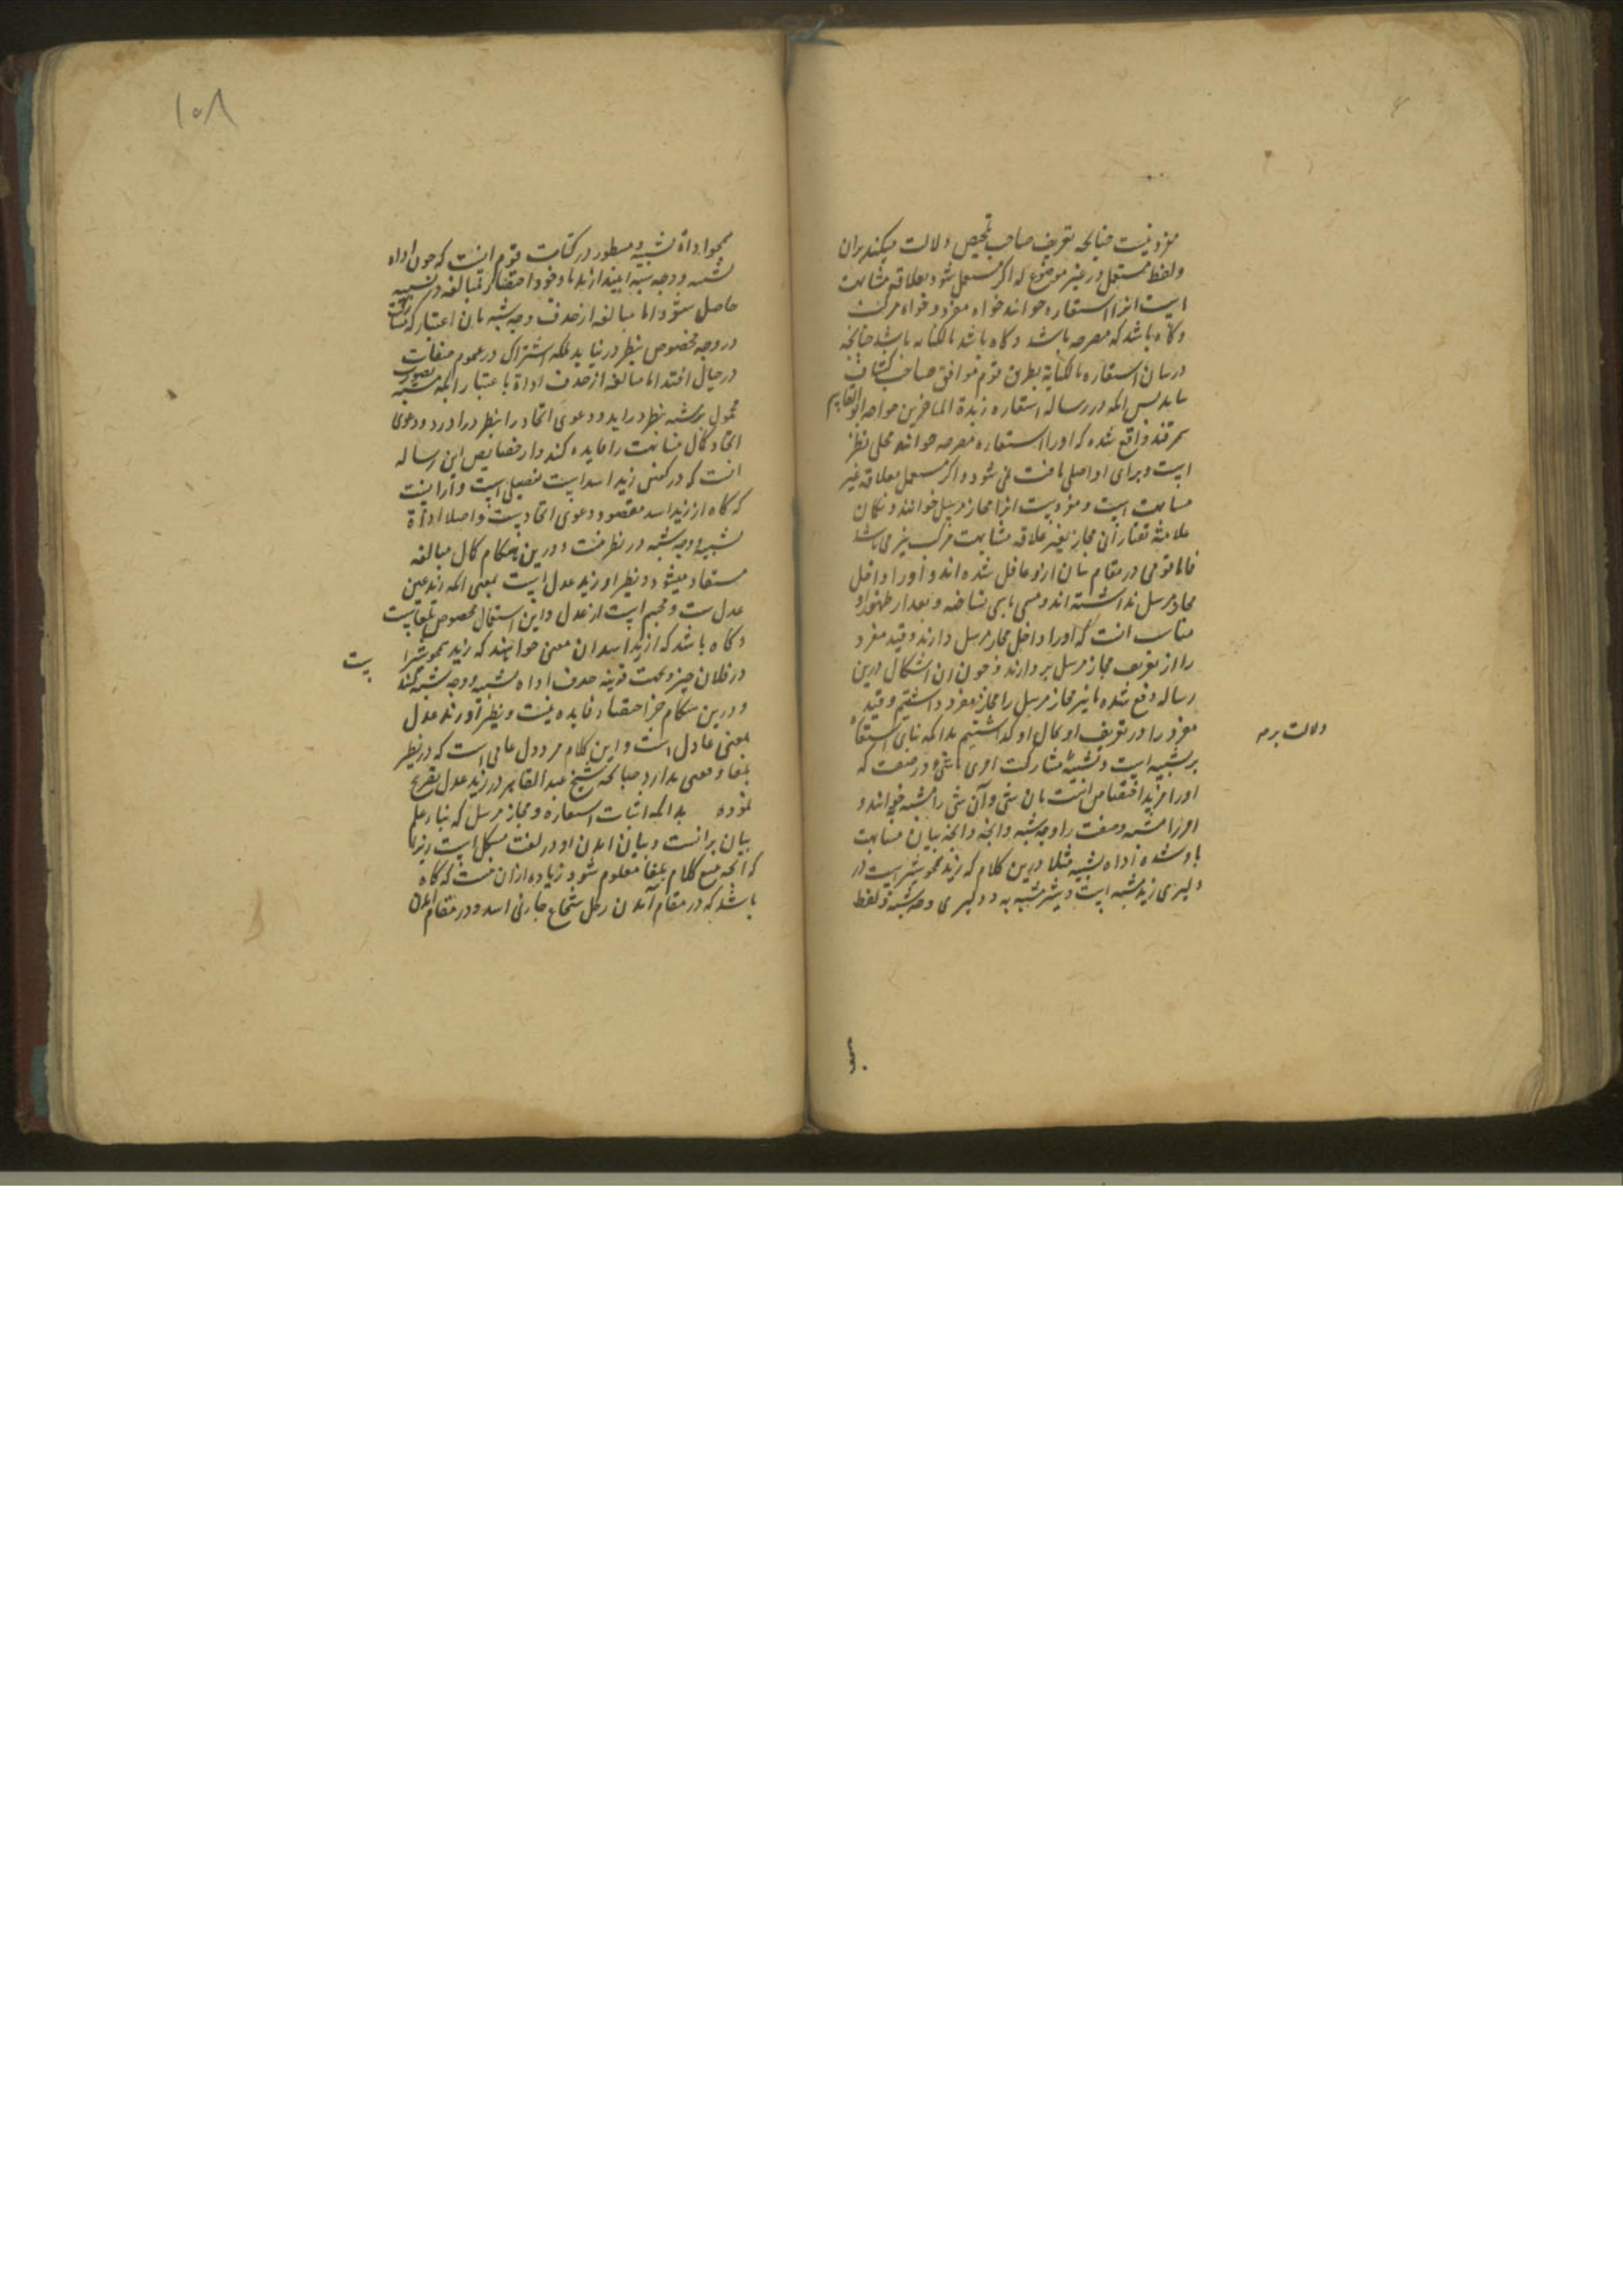 مفرد نیست چنانچه تعریف صاحب تلخیص دلالت میکند بران
ولفظ مستعمل در غیر موضوع له اگر مستعمل شود بعلاقه مشابهت
است انرا استعاره خوانند خواه مفرد و خواه مرکب
و گاه باشد که مصرحه باشد و گاه باشد بالکنایه باشد چنانچه
در بیان استعاره بالکنایه بطریق قوم موافق صاحب کشاف
بیاید پس انکه در رساله استعاره زبدة المتاخرین خواجه ابوالقاسم
سمرقند واقع شده که اورا استعاره مصرحه خوانند محل نظر
است و برای او اصلی یافت نمی شود و اگر مستعمل بعلاقه غیر
مشابهت است و مفردست انرا مجاز مرسل خوانند و بگمان
علامه تفتازان مجاز بغیر علاقه مشابهت مرکب نیز می باشد
فاما قوم در مقام بیان ازو غافل شده اند و اورا داخل
مجاز مرسل نداشته اند و مسمی باسمی نساخته و بعد از ظهور او
مناسب انست که اورا داخل مجاز مرسل دارند و قید مفرد
را از تعریف مجاز مرسل بردارند و چون ان اشکال درین
رساله دفع نشده ما نیز مجاز مرسل را مجاز مفرد داشتیم و قید
مفرد را در تعریف او بحال او گذاشتیم بدانکه بنای استعاره
بر تشبیه است و تشبیه مشارکت امری با شیء در صفت که
اورا مزید اختصاص است بان شی وآن شی را مشبه به خوانند و
امر را مشبه و صفت را وجه شبه و انچه دانچه بیان مشابهت
باو شده اداه تشبیه مثلا درین کلام که زید همچو شیر است در
دلیری زید مشبه است و شیر مشبه به و دلیری وجه شبه و لفظ
دلالت برمه
۱۵۸
همچو اداة تشبیه و مسطور در کتاب قوم انست که چون اداه
تشبیه و وجه شبه بیندازند با وجود اختصار مبالغه در تشبیه
حاصل شود اما مبالغه از حذف وجه شبه بان اعتبار که مشارکت
در وجه مخصوص بنظر در نیاید بلکه اشتراک در عموم صفات
در خیال افتد اما مبالغه از حذف اداة باعتبار انکه بصورت مشبه به
محمول بر مشبه بنظر در اید و دعوی اتحاد را بنظر در اورد و دعوی
اتحاد کمال مشابهت را فایده کند و از خصایص این رساله
انست که در گفتن زید اسد است تفصیلی است و آن اینست
که گاه از زید اسد مقصود دعوی اتحادیست و اصلا اداة
تشبیه و وجه شبه در نظر نیست و درین هنگام کمال مبالغه
مستفاد میشود و نظیر او زید عدل است بمعنی انکه زید عین
عدل ست و مجسم است از عدل و این استعمال مخصوص بلغاست
و گاه باشد که از زید اسد ان معنی خواهند که زید همچو شیر است
در فلان چیز و بحسب قرینه حذف اداه تشبیه و وجه شبه کنند
و درین هنگام جز اختصار فایده نیست و نظیر او زید عدل
بمعنی عادل است و این کلام مردود عامی است که در نظر
بلغا وقعی ندارد چنانکه شیخ عبدالقاهر در زید عدل تصریح
نموده بدانکه اثبات استعاره و مجاز مرسل که بنا علم
بیان برانست و بیان امدن او در لغت مشکل است زیرا
که انچه تتبع کلام بلغا معلوم شود زیاده ازان نیست که گاه
باشد که در مقام آمدن رجل شجاع جاءنی اسد و در مقام امدن